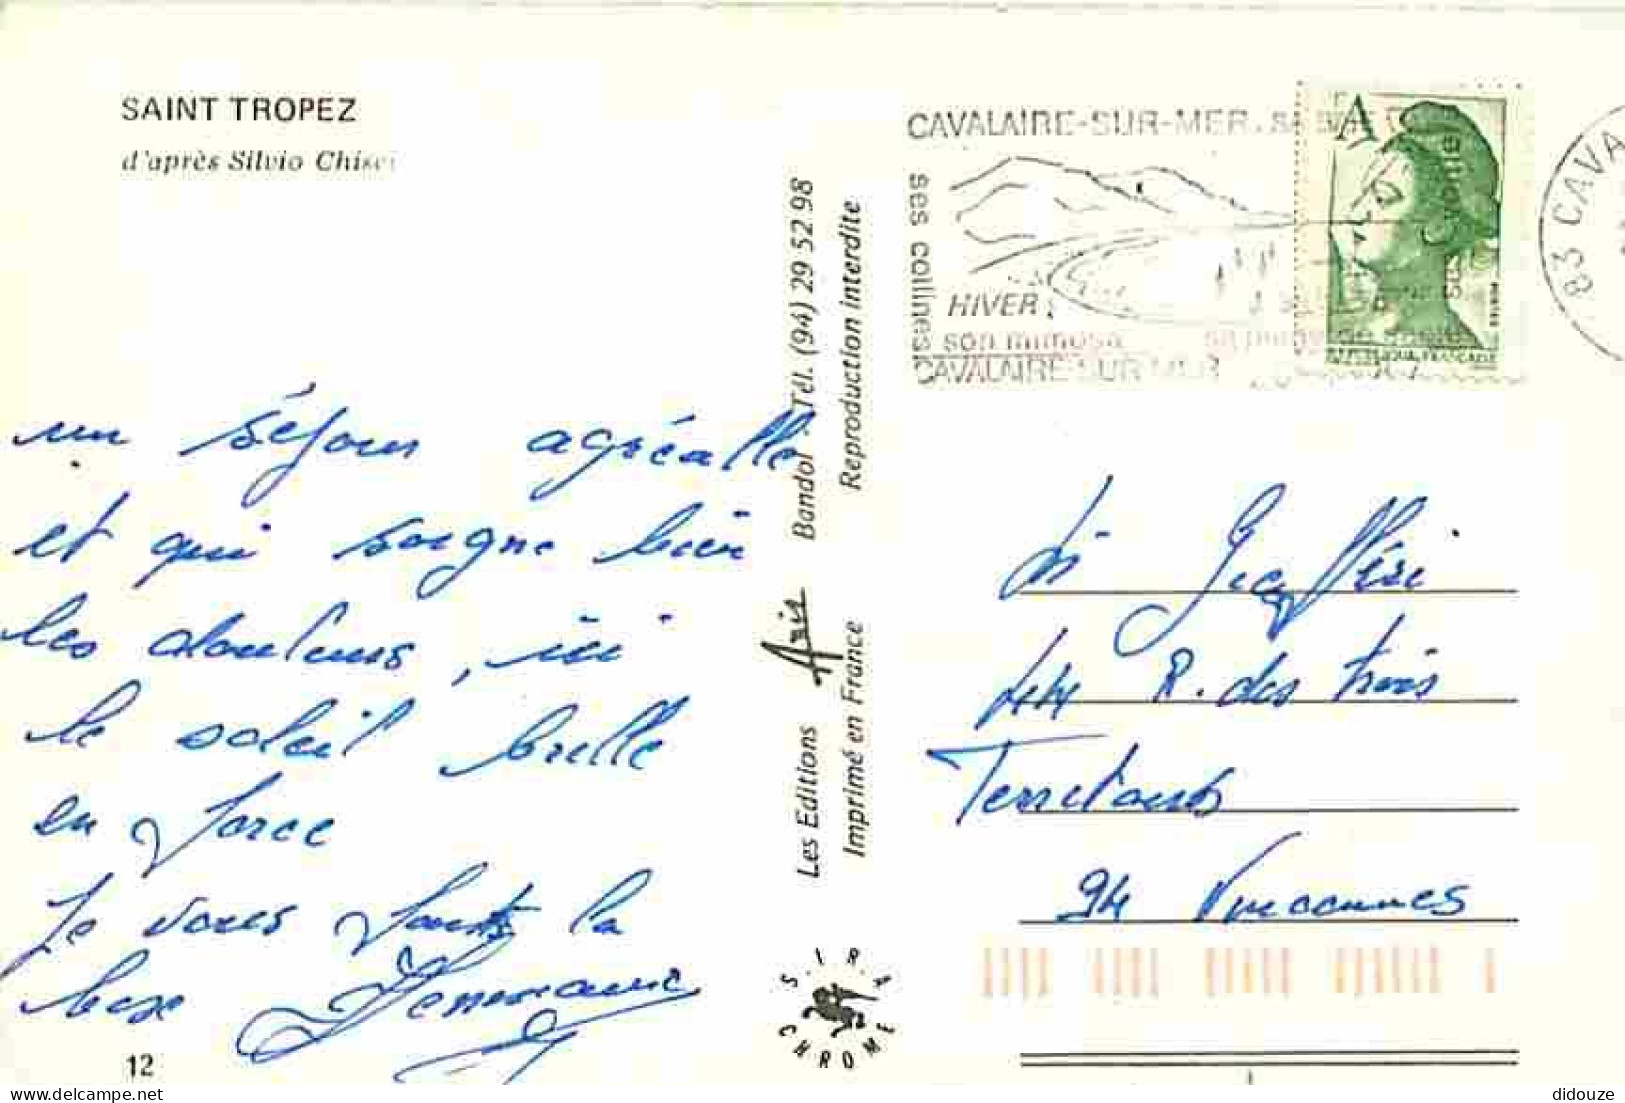 SAINT TROPEZ
d'après Silvio
un séjour agréable
et qui soigne bien
les douleurs, ici
le soleil brille
en force
Je vous
bise
12
Les Editions Aris Bandol Tél. (94) 29 52 98
Imprimé en France Reproduction interdite
S.I.R.A.
CHROME
CAVALAIRE-SUR-MER
ses collines
HIVER
son mimosa
CAVALAIRE SUR MER
A
83 CAVA
44 R. des trois
Territoires
94 Vincennes
didouze